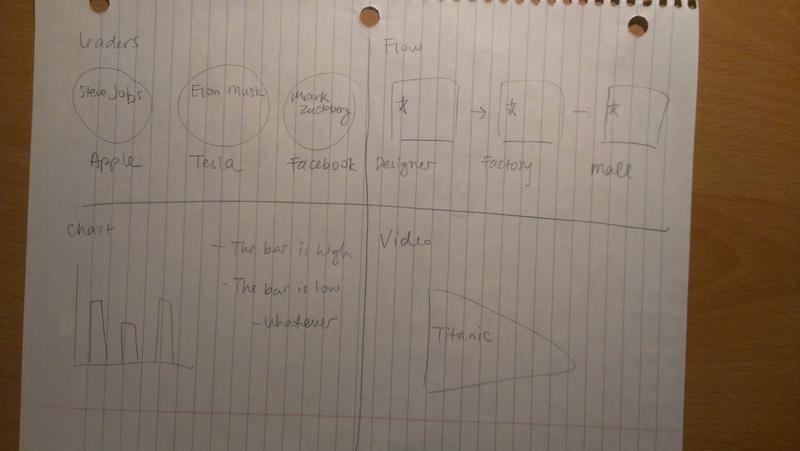 Leaders
Steve Jobs
Elon Musk
Mark
Zuckberg
Apple
Tesla
Facebook
Flow
Designer
Factory
Mall
Chart
- The bar is high
- The bar is low
- Whatever
Video
Titanic